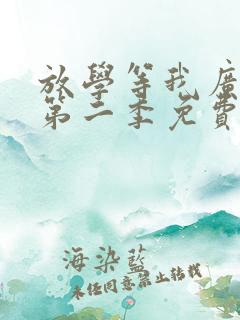 放學等我廣
第二季免費
海染藍
未任同意禁止转载